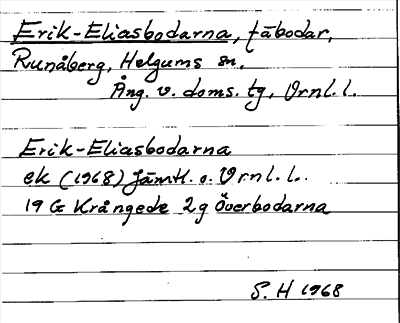 Erik-Eliasbodarna, fäbodar,
Runåberg, Helgums sn,
Ång. v. doms. tg, Vrnl. l.
Erik-Eliasbodarna
ek (1968) Jämtl. o. Vrnl. l.
19 G Krångede 2g Överbodarna
S. H 1968